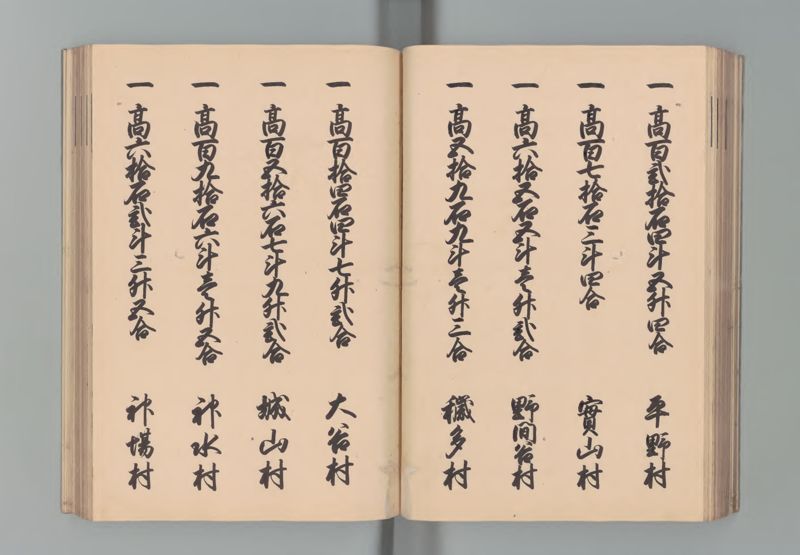 一 高百弐拾石四斗五升四合 平野村
一 高百七拾石三斗四合 實山村
一 高六拾五石五斗壱升弐合 野間谷村
一 高五拾九石九斗壱升三合 穢多村
一 高百拾四石四斗七升弐合 大谷村
一 高百五拾六石七斗九升弐合 城山村
一 高百九拾石六斗壱升五合 神水村
一 高六拾石弐斗三升五合 神場村